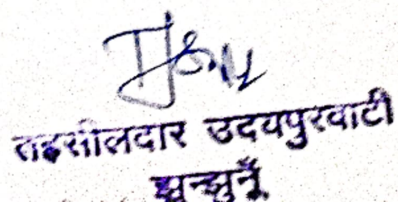 तहसीलदार उदयपुरवाटी
झुन्झुनूँ